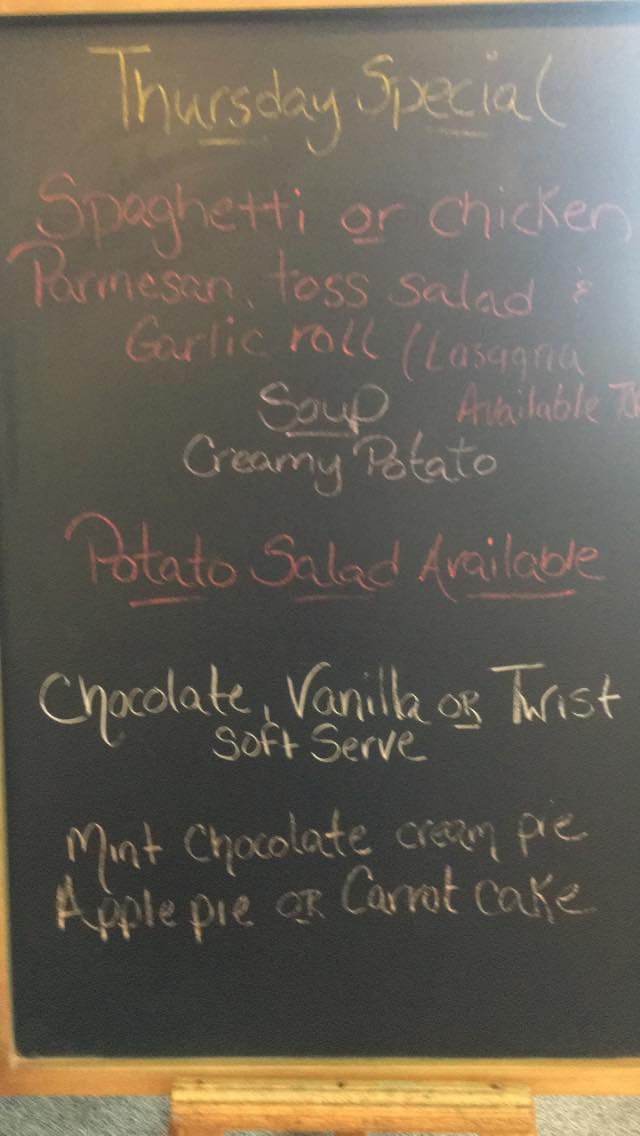 Thursday Special
Spaghetti or chicken
Parmesan, toss salad &
Garlic roll (Lasagna
Available
Soup
Creamy Potato
Potato Salad Available
Chocolate, Vanilla OR Twist
Soft Serve
Mint Chocolate cream pie
Apple pie OR Carrot cake